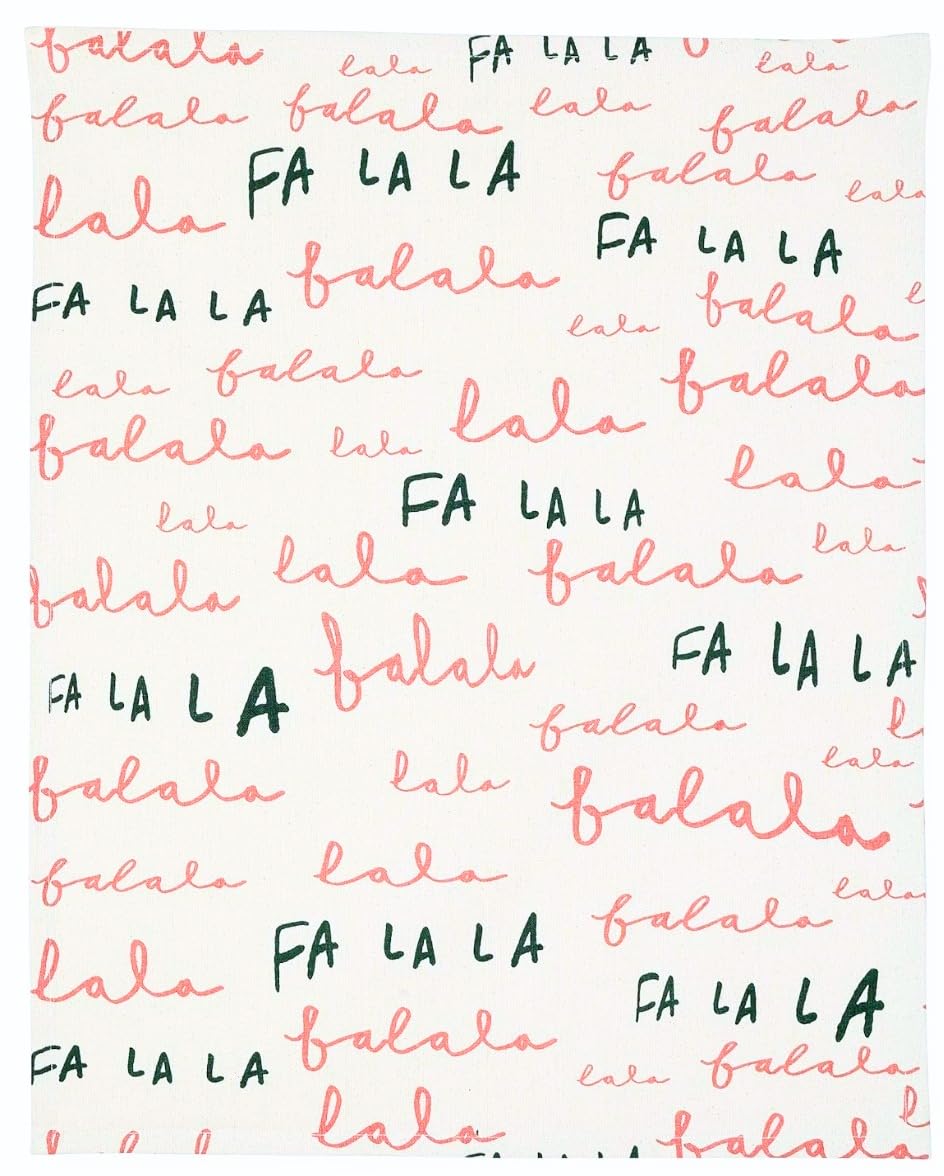 falala
lala
FA LA LA
lala
falala
falala
lala
falala
FA LA LA
falala
lala
lala
FA LA LA
falala
FA LA LA
falala
lala
falala
falala
lala
lala
falala
lala
lala
FA LA LA
lala
lala
lala
falala
falala
falala
FA LA LA
FA LA LA
falala
lala
falala
lala
falala
lala
falala
lala
falala
FA LA LA
lala
FA LA LA
falala
FA LA LA
lala
falala
lala
falala